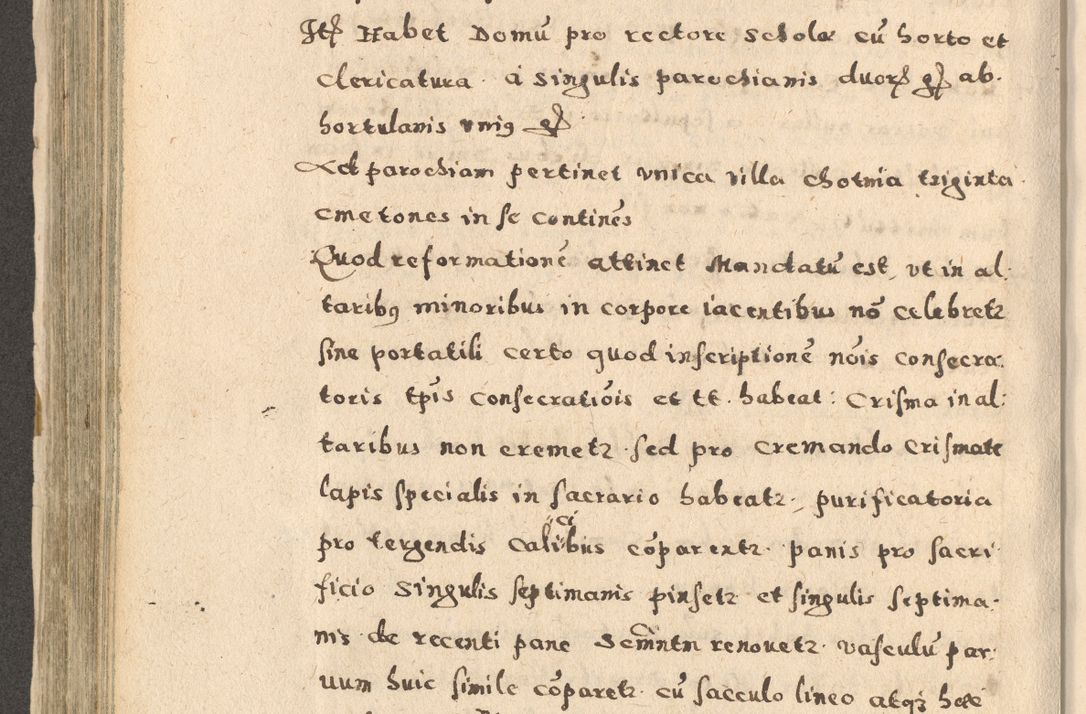 Itē Habet Domū pro rectore scholæ cū horto et
clericatura. á singulis parochianis duorꝝ gꝭ ab.
hortulanis vniꝰ gꝭ.
Ad parochiam pertinet vnica villa chotnia triginta.
cmetones in se continēs
Quod reformationē attinet Mandatū est, vt in al.
taribꝰ minoribus in corpore iacentibus nō celebretꝛ
sine portatili certo quod inscriptionē nōis consecra.
toris tp̄is consecratiōis et tt. habeat: Crisma in al:
taribus non cremetꝛ. sed pro cremando crismate
lapis specialis in sacrario habeatꝛ, purificatoria
pro tergendis calicibus cōparentꝛ. panis pro sacri
ficio singulis septimanis pinsetꝛ et singulis septima.
nis de recenti pane renouetꝛ. vasculū par:
uum huic simile cōparetꝛ. cū sacculo lineo atqꝫ hæc